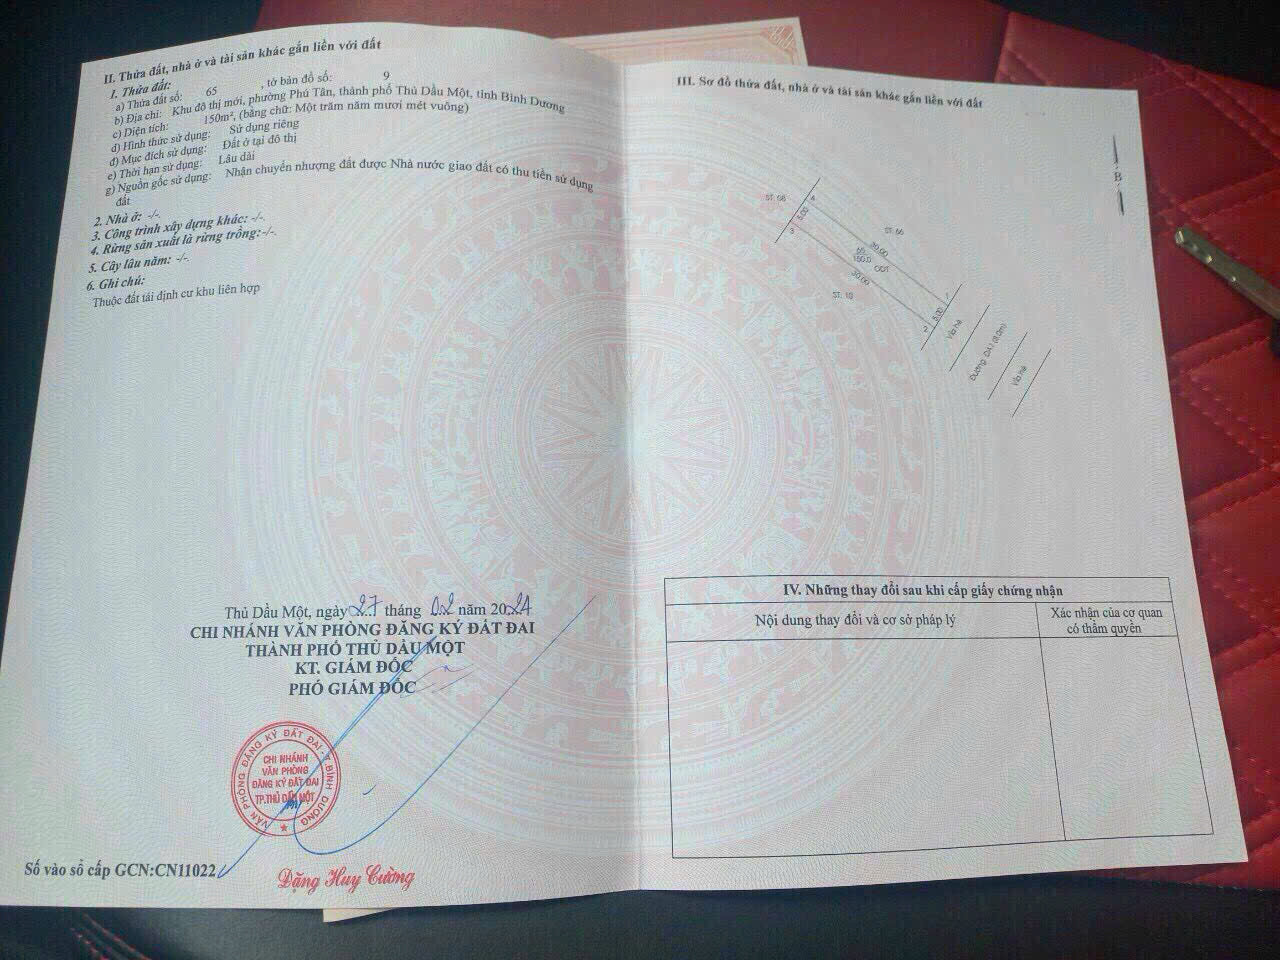 II. Thửa đất, nhà ở và tài sản khác gắn liền với đất
1. Thửa đất:
a) Thửa đất số: 65 , tờ bản đồ số: 9
b) Địa chỉ: Khu đô thị mới, phường Phú Tân, thành phố Thủ Dầu Một, tỉnh Bình Dương
c) Diện tích: 150m², (bằng chữ: Một trăm năm mươi mét vuông)
d) Hình thức sử dụng: Sử dụng riêng
đ) Mục đích sử dụng: Đất ở tại đô thị
e) Thời hạn sử dụng: Lâu dài
g) Nguồn gốc sử dụng: Nhận chuyển nhượng đất được Nhà nước giao đất có thu tiền sử dụng
đất
2. Nhà ở: -/-.
3. Công trình xây dựng khác: -/-.
4. Rừng sản xuất là rừng trồng:-/-.
5. Cây lâu năm: -/-.
6. Ghi chú:
Thuộc đất tái định cư khu liên hợp
Thủ Dầu Một, ngày 27 tháng 02 năm 2024
CHI NHÁNH VĂN PHÒNG ĐĂNG KÝ ĐẤT ĐAI
THÀNH PHỐ THỦ DẦU MỘT
KT. GIÁM ĐỐC
PHÓ GIÁM ĐỐC
VĂN PHÒNG ĐĂNG KÝ ĐẤT ĐAI-T.BÌNH DƯƠNG
CHI NHÁNH
VĂN PHÒNG
ĐĂNG KÝ ĐẤT ĐAI
TP.THỦ DẦU MỘT
Đặng Huy Cường
Số vào sổ cấp GCN:CN11022
III. Sơ đồ thửa đất, nhà ở và tài sản khác gắn liền với đất
B
ST: 68
4
5.00
3
ST: 66
30.00
65
150.0
ODT
30.00
ST: 10
1
5.00
2
Vỉa hè
Đường DA7 (8.0m)
Vỉa hè
IV. Những thay đổi sau khi cấp giấy chứng nhận
Nội dung thay đổi và cơ sở pháp lý
Xác nhận của cơ quan
có thẩm quyền